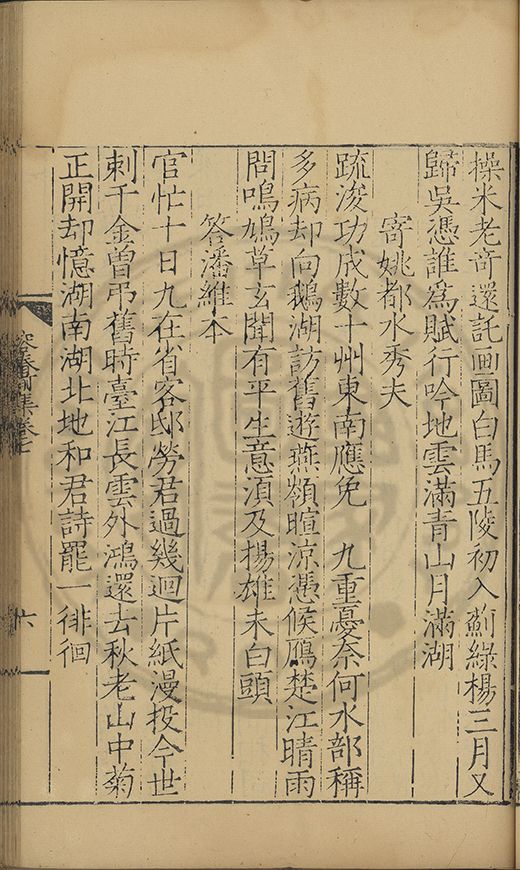 操米老奇還託画圖白馬五陵初入薊綠楊三月又
歸吳憑誰爲賦行吟地雲滿青山月滿湖
寄姚都水秀夫
疏浚功成數十州東南應免　九重憂奈何水部稱
多病却向鵝湖訪舊遊燕領暄凉憑候鴈楚江晴雨
問鳴鳩草玄聞有平生意湏及揚雄未白頭
答潘維本
官忙十日九在省客邸勞君過幾迴片紙漫投今世
刺千金曾弔舊時臺江長雲外鴻還去秋老山中菊
正開却憶湖南湖北地和君詩罷一徘徊
容春前集卷七
六